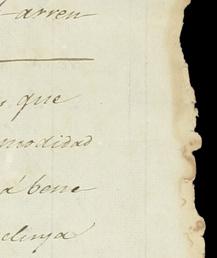 arren
que
modidad
á bene
cluya